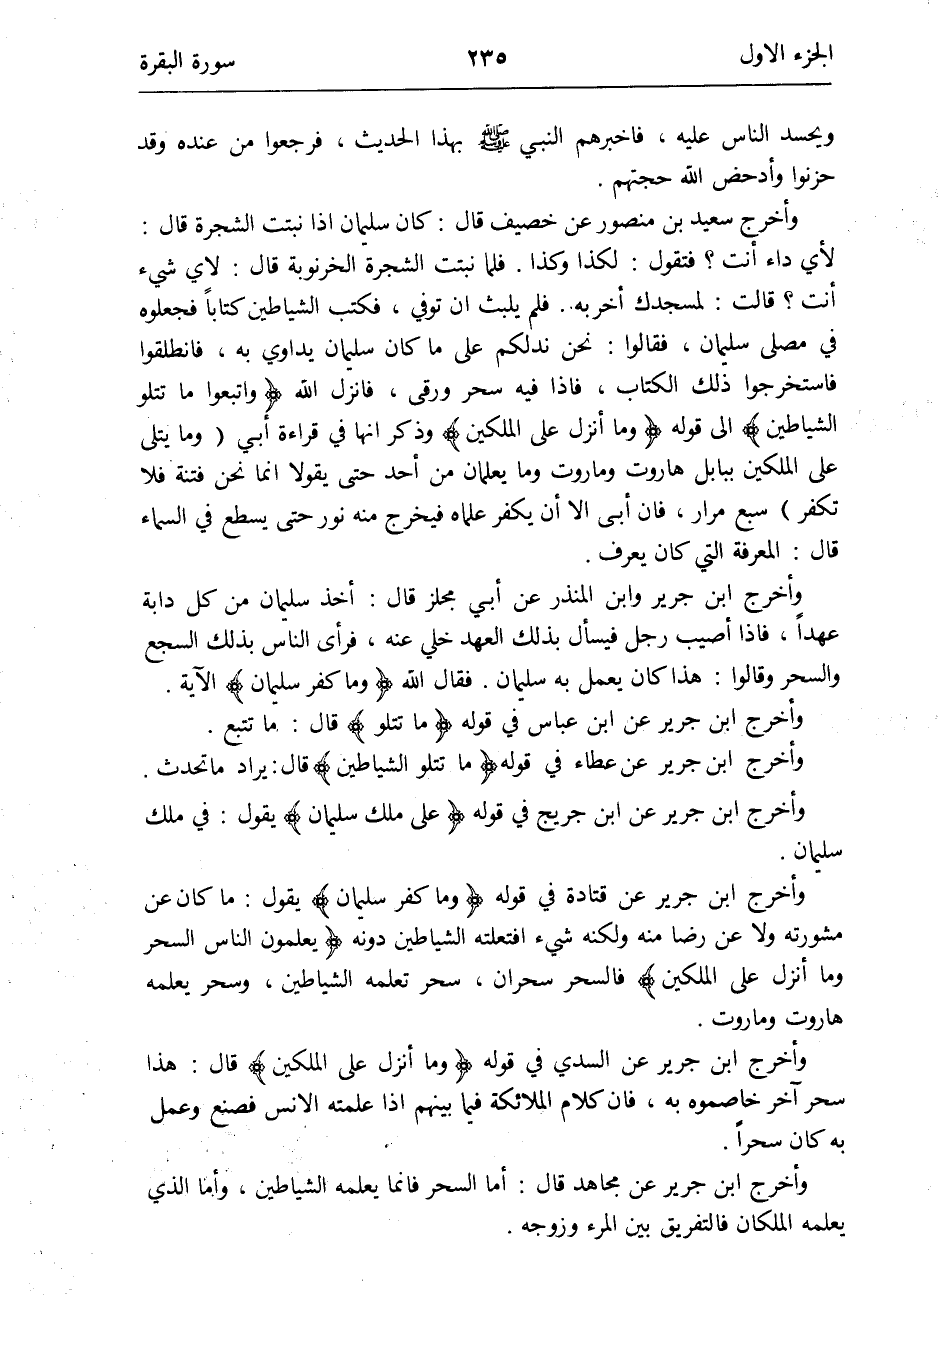 الجزء الاول ٢٣٥ سورة البقرة
ويحسد الناس عليه ، فاخبرهم النبي ﷺ بهذا الحديث ، فرجعوا من عنده وقد
حزنوا وأدحض الله حجتهم .
وأخرج سعيد بن منصور عن خصيف قال : كان سليمان اذا نبتت الشجرة قال :
لأي داء أنت ؟ فتقول : لكذا وكذا . فلما نبتت الشجرة الخرنوبة قال : لاي شيء
أنت ؟ قالت : لمسجدك أخربه . فلم يلبث ان توفي ، فكتب الشياطين كتاباً فجعلوه
في مصلى سليمان ، فقالوا : نحن ندلكم على ما كان سليمان يداوي به ، فانطلقوا
فاستخرجوا ذلك الكتاب ، فاذا فيه سحر ورقى ، فانزل الله ﴿ واتبعوا ما تتلو
الشياطين ﴾ الى قوله ﴿ وما أنزل على الملكين ﴾ وذكر انها في قراءة أبي ( وما يتلى
على الملكين ببابل هاروت وماروت وما يعلمان من أحد حتى يقولا انما نحن فتنة فلا
تكفر ) سبع مرار ، فان أبى الا أن يكفر علماه فيخرج منه نور حتى يسطع في السماء
قال : المعرفة التي كان يعرف .
وأخرج ابن جرير وابن المنذر عن أبي مجلز قال : أخذ سليمان من كل دابة
عهداً ، فاذا أصيب رجل فيسأل بذلك العهد خلي عنه ، فرأى الناس بذلك السجع
والسحر وقالوا : هذا كان يعمل به سليمان . فقال الله ﴿ وما كفر سليمان ﴾ الآية .
وأخرج ابن جرير عن ابن عباس في قوله ﴿ ما تتلو ﴾ قال : ما تتبع .
وأخرج ابن جرير عن عطاء في قوله ﴿ ما تتلو الشياطين ﴾ قال : يراد ما تحدث .
وأخرج ابن جرير عن ابن جريج في قوله ﴿ على ملك سليمان ﴾ يقول : في ملك
سليمان .
وأخرج ابن جرير عن قتادة في قوله ﴿ وما كفر سليمان ﴾ يقول : ما كان عن
مشورته ولا عن رضا منه ولكنه شيء افتعلته الشياطين دونه ﴿ يعلمون الناس السحر
وما أنزل على الملكين ﴾ فالسحر سحران ، سحر تعلمه الشياطين ، وسحر يعلمه
هاروت وماروت .
وأخرج ابن جرير عن السدي في قوله ﴿ وما أنزل على الملكين ﴾ قال : هذا
سحر آخر خاصموه به ، فان كلام الملائكة فيما بينهم اذا علمته الانس فصنع وعمل
به كان سحراً .
وأخرج ابن جرير عن مجاهد قال : أما السحر فانما يعلمه الشياطين ، وأما الذي
يعلمه الملكان فالتفريق بين المرء وزوجه .